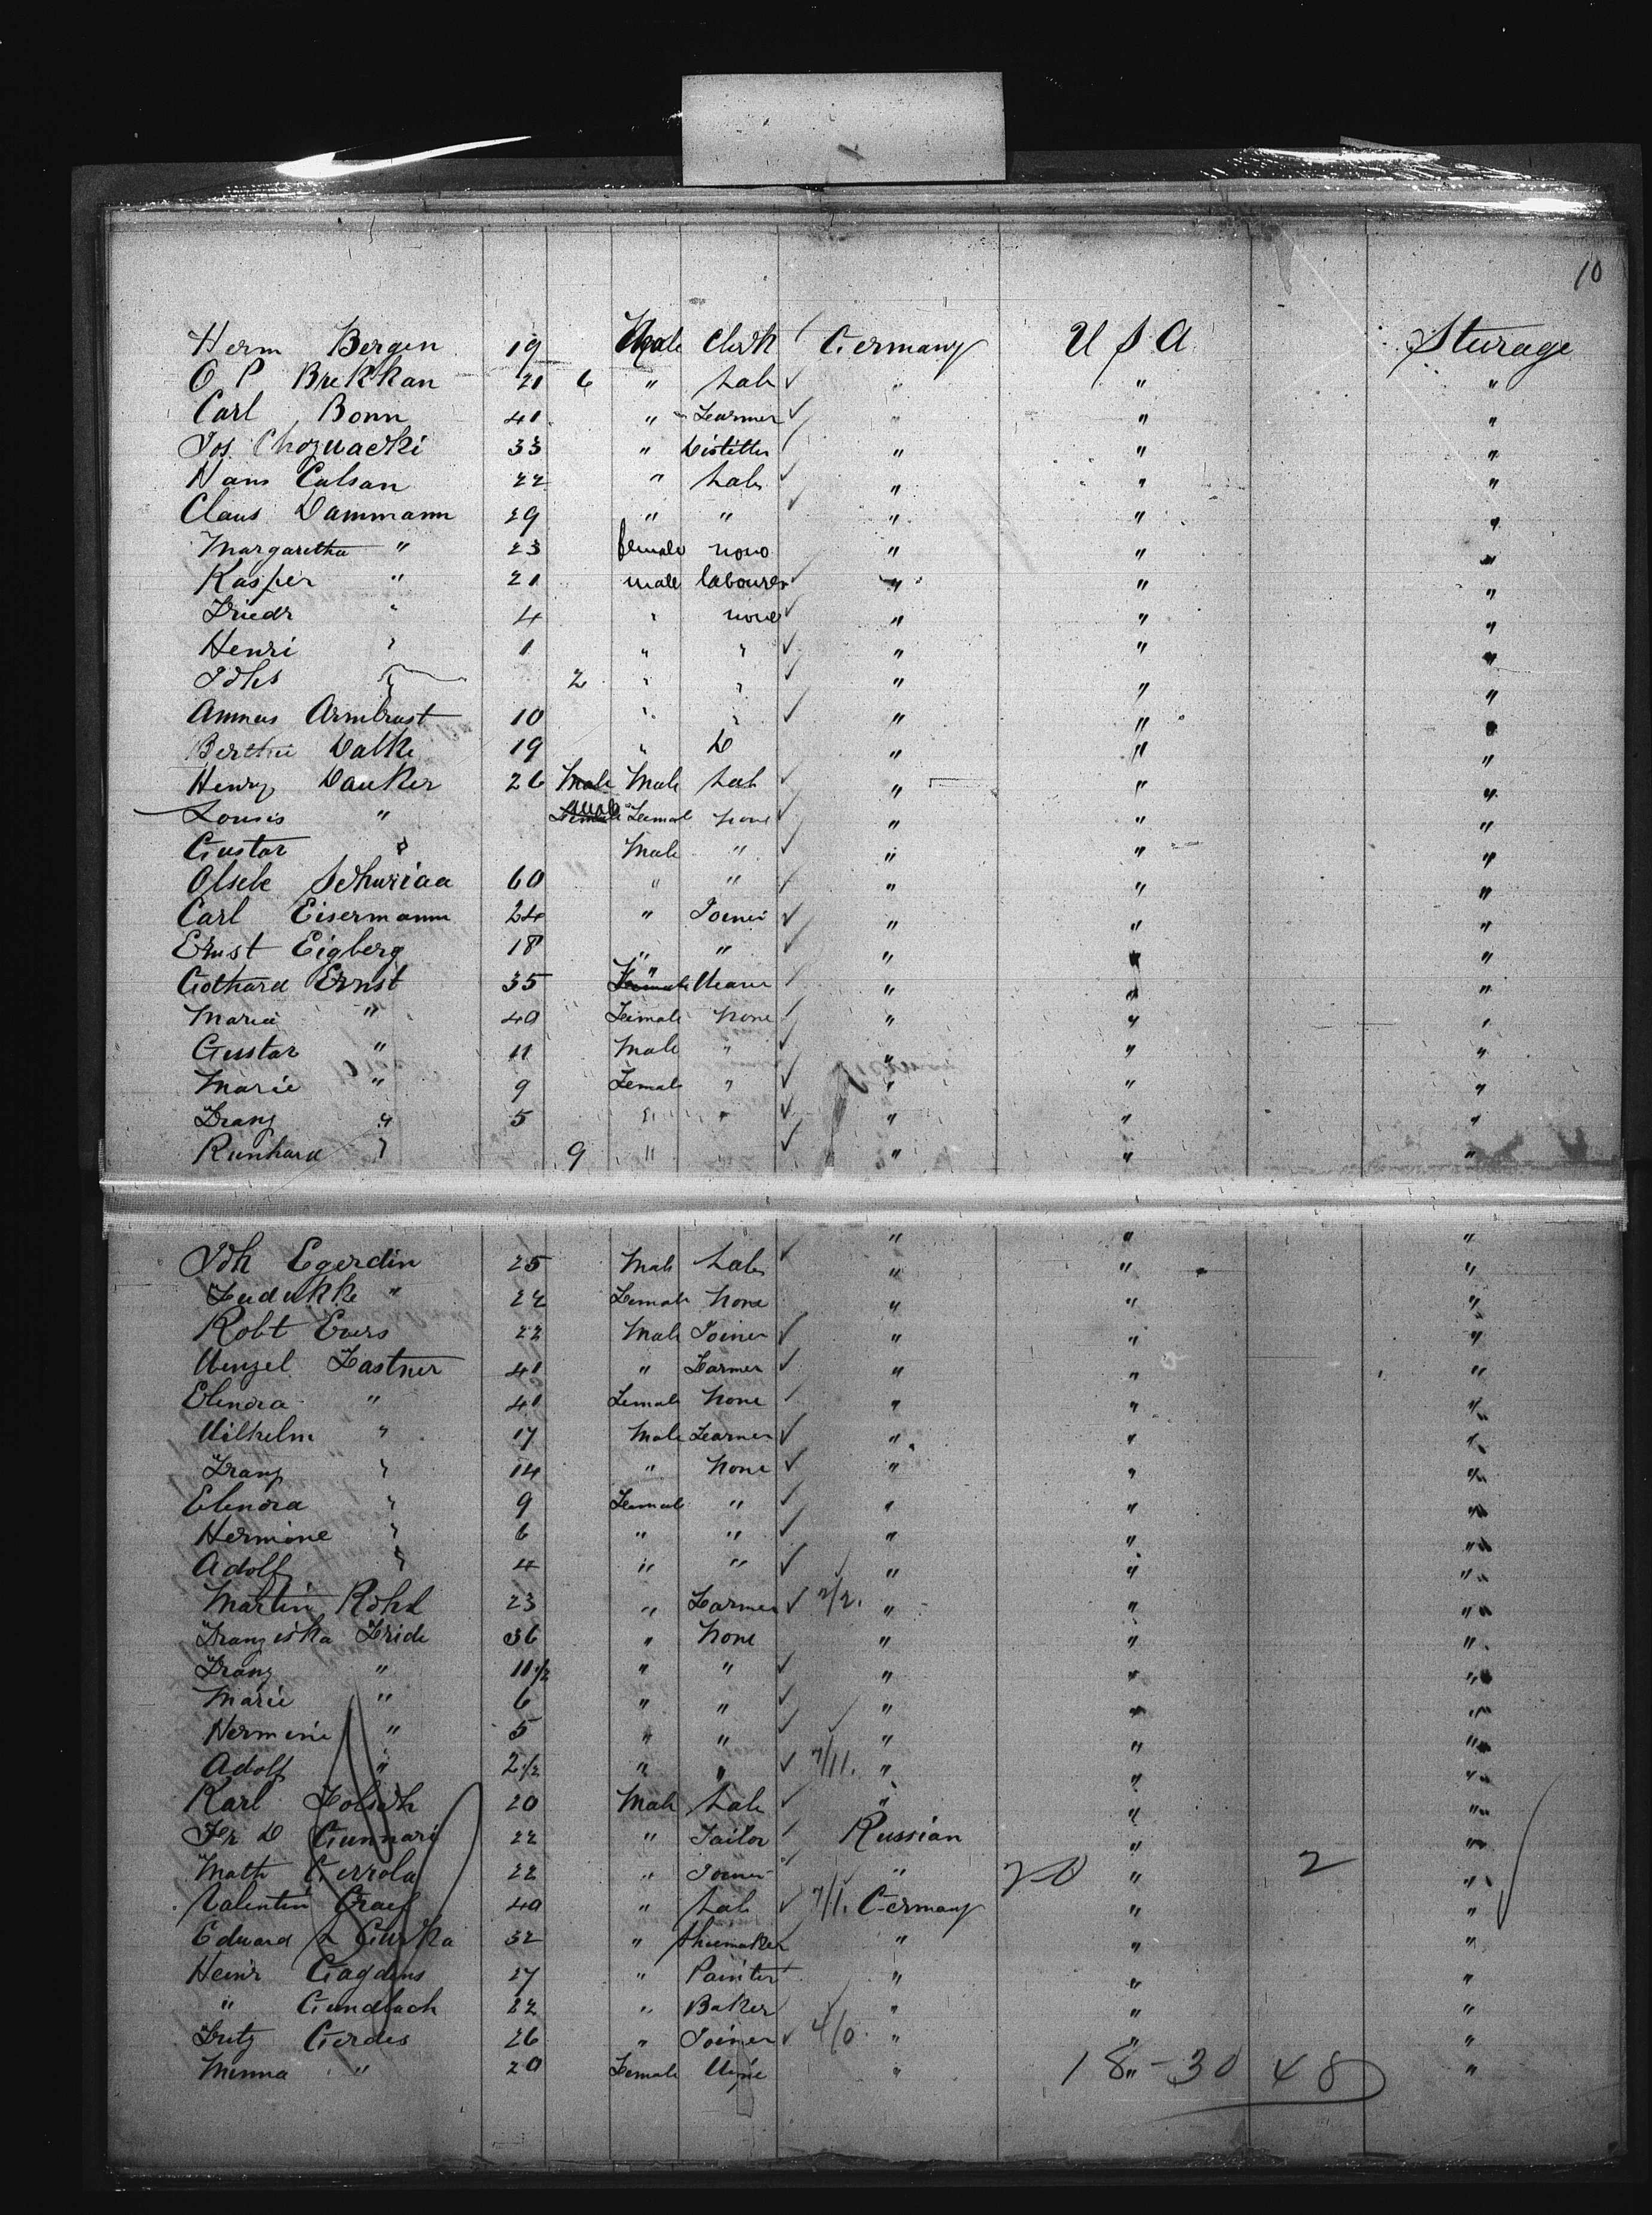 10
Herm Bergen 19 Male Clerk Germany U S A Sturage
O P Brekkan 21 6 " Lab " " "
Carl Bonn 41 " Farmer " " "
Jos. 33 " Distiller " " "
Hans Calsan 22 " Lab " " "
Claus Dammann 29 " " " " "
Margaretha " 23 female none " " "
Kasper " 21 male labourer " " "
Friedr " 4 " none " " "
Henri " 1 " " " " "
Johs " 2 " " " " "
Annus Armbrust 10 " " " " "
Dalke 19 " D " " "
Henry Dauker 26 Male Male Lab " " "
Louis " Female none " " "
Gustav " Male " " " "
Olsele Schuriaa 60 " " " " "
Carl Eisermann 24 " Joiner " " "
Ernst Eigberg 18 " " " " "
Gothard Ernst 35 " Weaver " " "
Maria " 40 Female None " " "
Gustav " 11 Male " " " "
Marie " 9 Female " " " "
Franz " 5 " " " " "
Reinhard " 9 " " " " "
" " "
Joh Egerdin 25 Male Lab " " "
" 22 Female None " " "
Robt Evers 22 Male Joiner " " "
Wenzel Fastner 41 " Farmer " " "
Elenora " 41 Female None " " "
Wilhelm " 17 Male Farmer " " "
Franz " 14 " None " " "
Elenora " 9 Female " " " "
Hermine " 6 " " " " "
Adolf " 4 " " " " "
Martin Rohd 23 " Farmer 2/2. " " "
Franziska Fride 36 " None " " "
Franz " 11 1/2 " " " " "
Marie " 6 " " " " "
Hermine " 5 " " " " "
Adolf " 2 1/2 " " 7/11. " " "
Karl 20 Male Lab " " "
Fr D Gunnari 22 " Tailor Russian " "
Math Gerrola 22 " Joiner " 20 " 2 "
Valentin Graef 40 " Lab 7/1. Germany " "
Eduard Gurka 32 " Shoemaker " " "
Heinr Gagdens 27 " Painter " " "
" Gundlach 22 " Baker " " "
Fritz Gerdes 26 " Joiner 4/0. " " "
Minna " 20 Female Wife " 18 " - 30 48 "